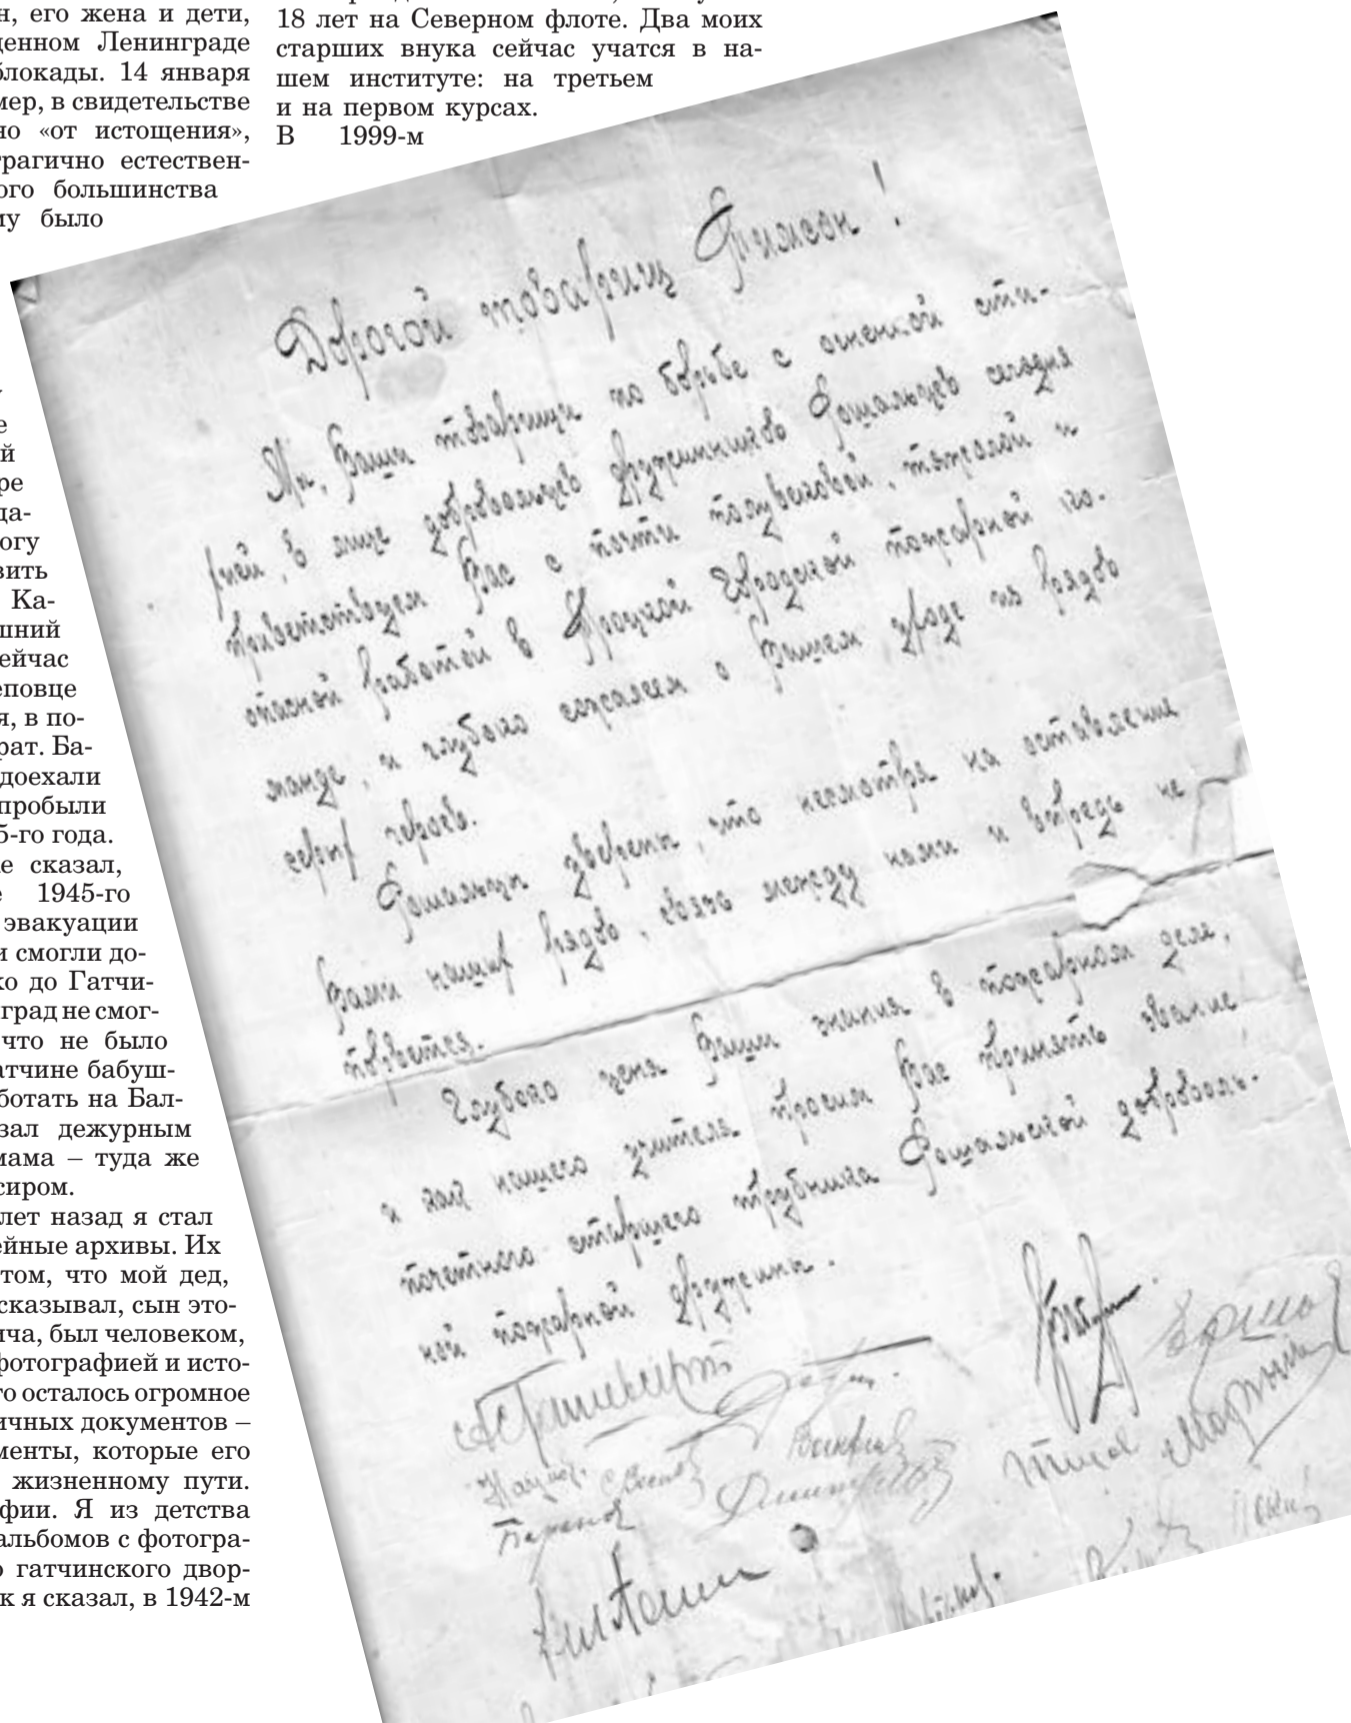 н, его жена и дети,
денном Ленинграде
блокады. 14 января
мер, в свидетельстве
но «от истощения»,
трагично естествен-
ого большинства
му было
е
й
ре
да-
огу
вить
Ка-
шний
ейчас
еповце
я, в по-
рат. Ба-
доехали
пробыли
5-го года.
е сказал,
е 1945-го
эвакуации
и смогли до-
ко до Гатчи-
град не смог-
что не было
атчине бабуш-
ботать на Бал-
зал дежурным
мама – туда же
сиром.
лет назад я стал
ейные архивы. Их
том, что мой дед,
сказывал, сын это-
ича, был человеком,
фотографией и исто-
го осталось огромное
ичных документов –
менты, которые его
жизненному пути.
фии. Я из детства
альбомов с фотогра-
о гатчинского двор-
к я сказал, в 1942-м
18 лет на Северном флоте. Два моих
старших внука сейчас учатся в на-
шем институте: на третьем
и на первом курсах.
В 1999-м
Дорогой товарищ !
Мы, Ваши товарищи по борьбе с огненной сти-
хией, в лице добровольцев дружинников Рошальцев сегодня
приветствуем Вас с почти полувековой, тяжелой и
опасной работой в Троцкой Городской пожарной ко-
манде, и глубоко сожалеем о Вашем уходе из рядов
серых героев.
Рошальцы уверены, что несмотря на оставление
Вами наших рядов, связь между нами и впредь не
порвется.
Глубоко ценя Ваши знания в пожарном деле,
и как нашего учителя просим Вас принять звание
почетного старшего трубника Рошальской доброволь-
ной пожарной дружины.